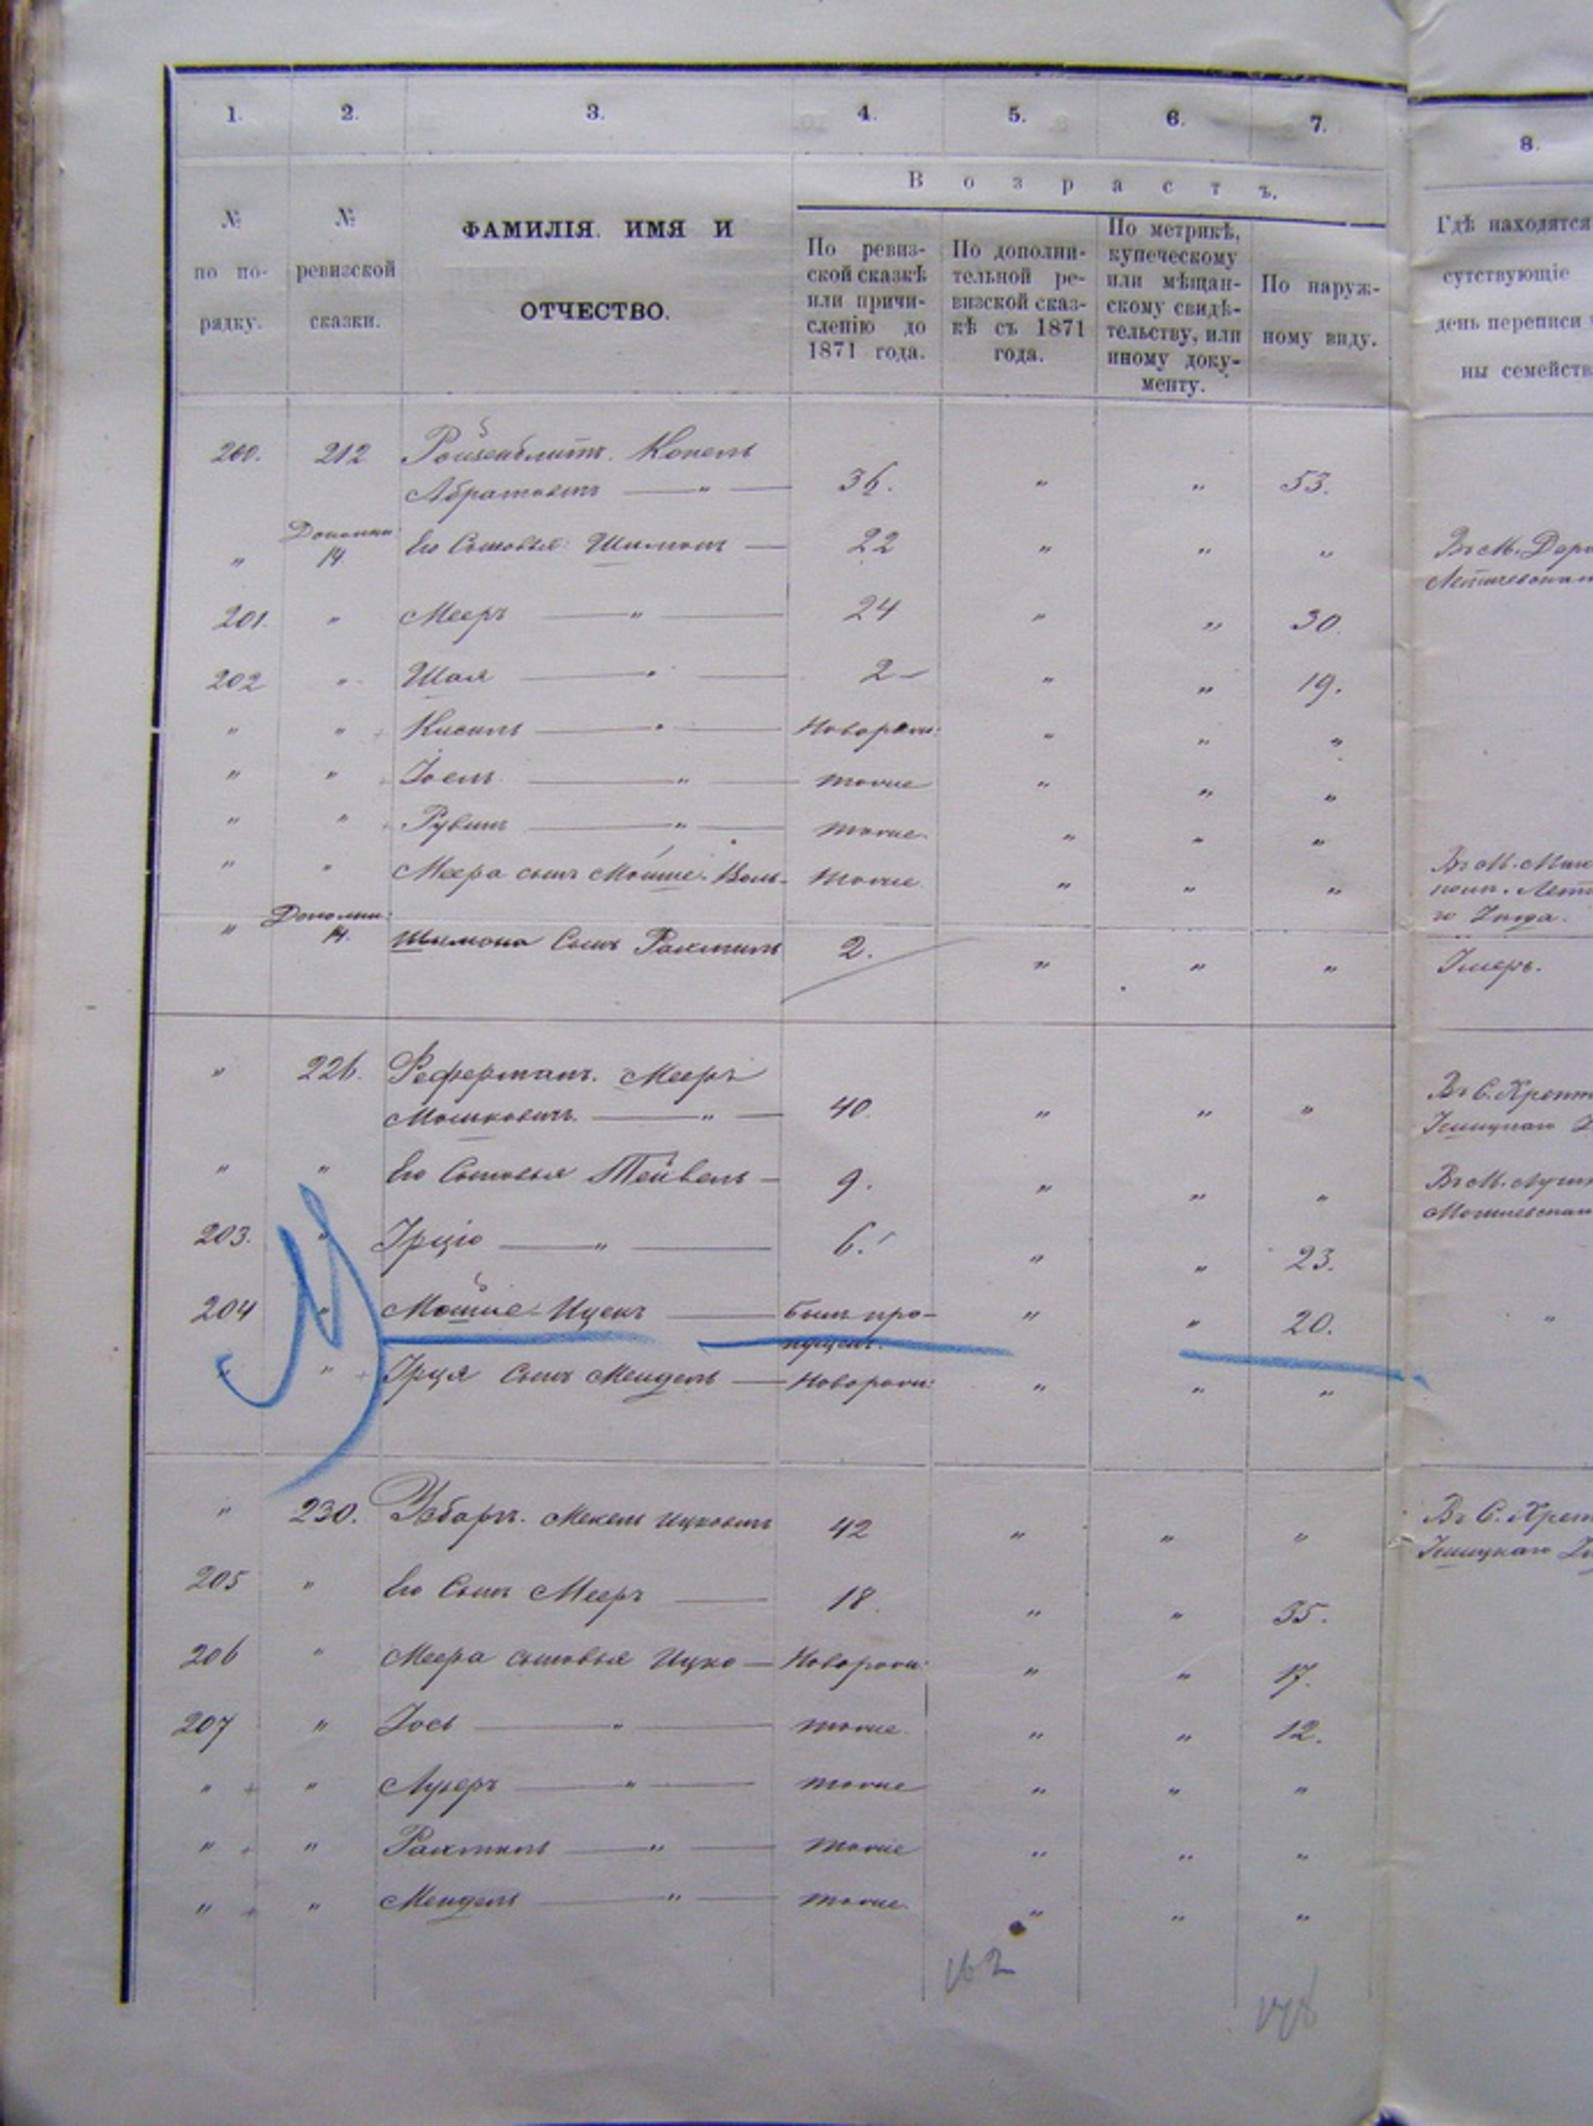 1. 2. 3. 4. 5. 6. 7. 8.
В о з р а с т ъ.
№ по по-рядку.
№ ревизской сказки.
ФАМИЛІЯ. ИМЯ И
ОТЧЕСТВО.
По ревиз-
ской сказкѣ
или причи-
сленію до
1871 года.
По дополни-
тельной ре-
визской сказ-
кѣ съ 1871
года.
По метрикѣ,
купеческому
или мѣщан-
скому свидѣ-
тельству, или
иному доку-
менту.
По наруж-
ному виду.
Гдѣ находятся
сутствующіе
день переписи
ны семейств
200. 212 Ройзенблитъ. Копель
Абрамовичъ — " — 36. " " 53.
" Дополни: 14. Его Сыновья: Шимонъ — 22 " " " Въ М.
201. " Мееръ — " — 24 " " 30.
202 " Шая — " — 2 " " 19.
" " Кисиль — " — Новорож: " " "
" " Іоель — " — тоже " " "
" " Рувинъ — " — тоже " " "
" " Меера сынъ Мойше- Воль- тоже " " " Въ М.
" Дополни: 14. Шимона Сынъ Рахмиль 2. " " "
" 226. Феферманъ. Мееръ Въ С.
Мошковичъ — " — 40. " " "
" " Его Сыновья Тейвель — 9. " " " Въ М.
203. " Грціо — " — 6. " " 23.
204 " Мойше-Ицекъ — былъ про- " " 20. "
пущенъ.
" " Грця Сынъ Мендель — Новорож: " " "
" 230. Збаръ. Мекель Ицковичъ 42 " " " Въ С.
205 " Его Сынъ Мееръ — 18. " " 35.
206 " Меера сыновья Ицко — Новорож: " " 17.
207 " Іось — " — тоже. " " 12.
" " Лузеръ — " — тоже " " "
" " Рахмиль — " — тоже " " "
" " Мендель — " — тоже. " " "
162